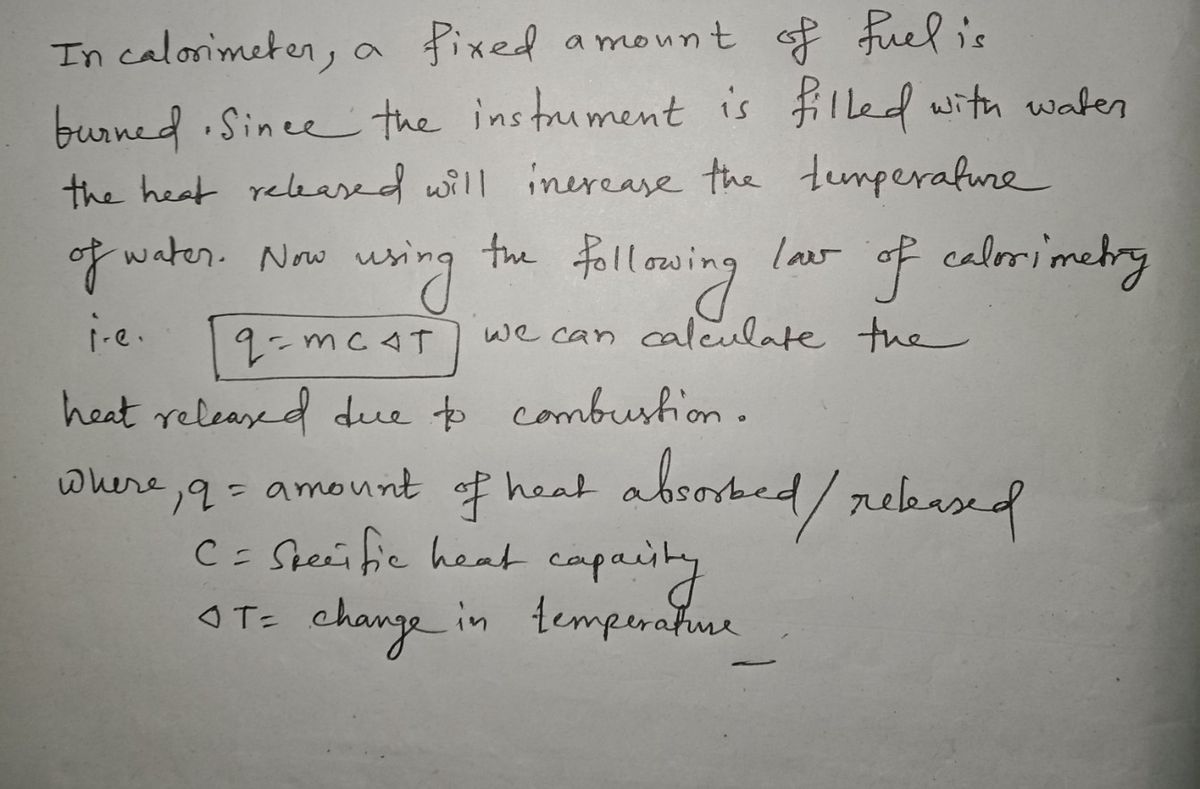 In calorimeter, a fixed amount of fuel is
burned. Since the instrument is filled with water
the heat released will increase the temperature
of water. Now using the following law of calorimetry
i.e. q = mc ΔT we can calculate the
heat released due to combustion.
where, q = amount of heat absorbed / released
C = Specific heat capacity
ΔT = change in temperature